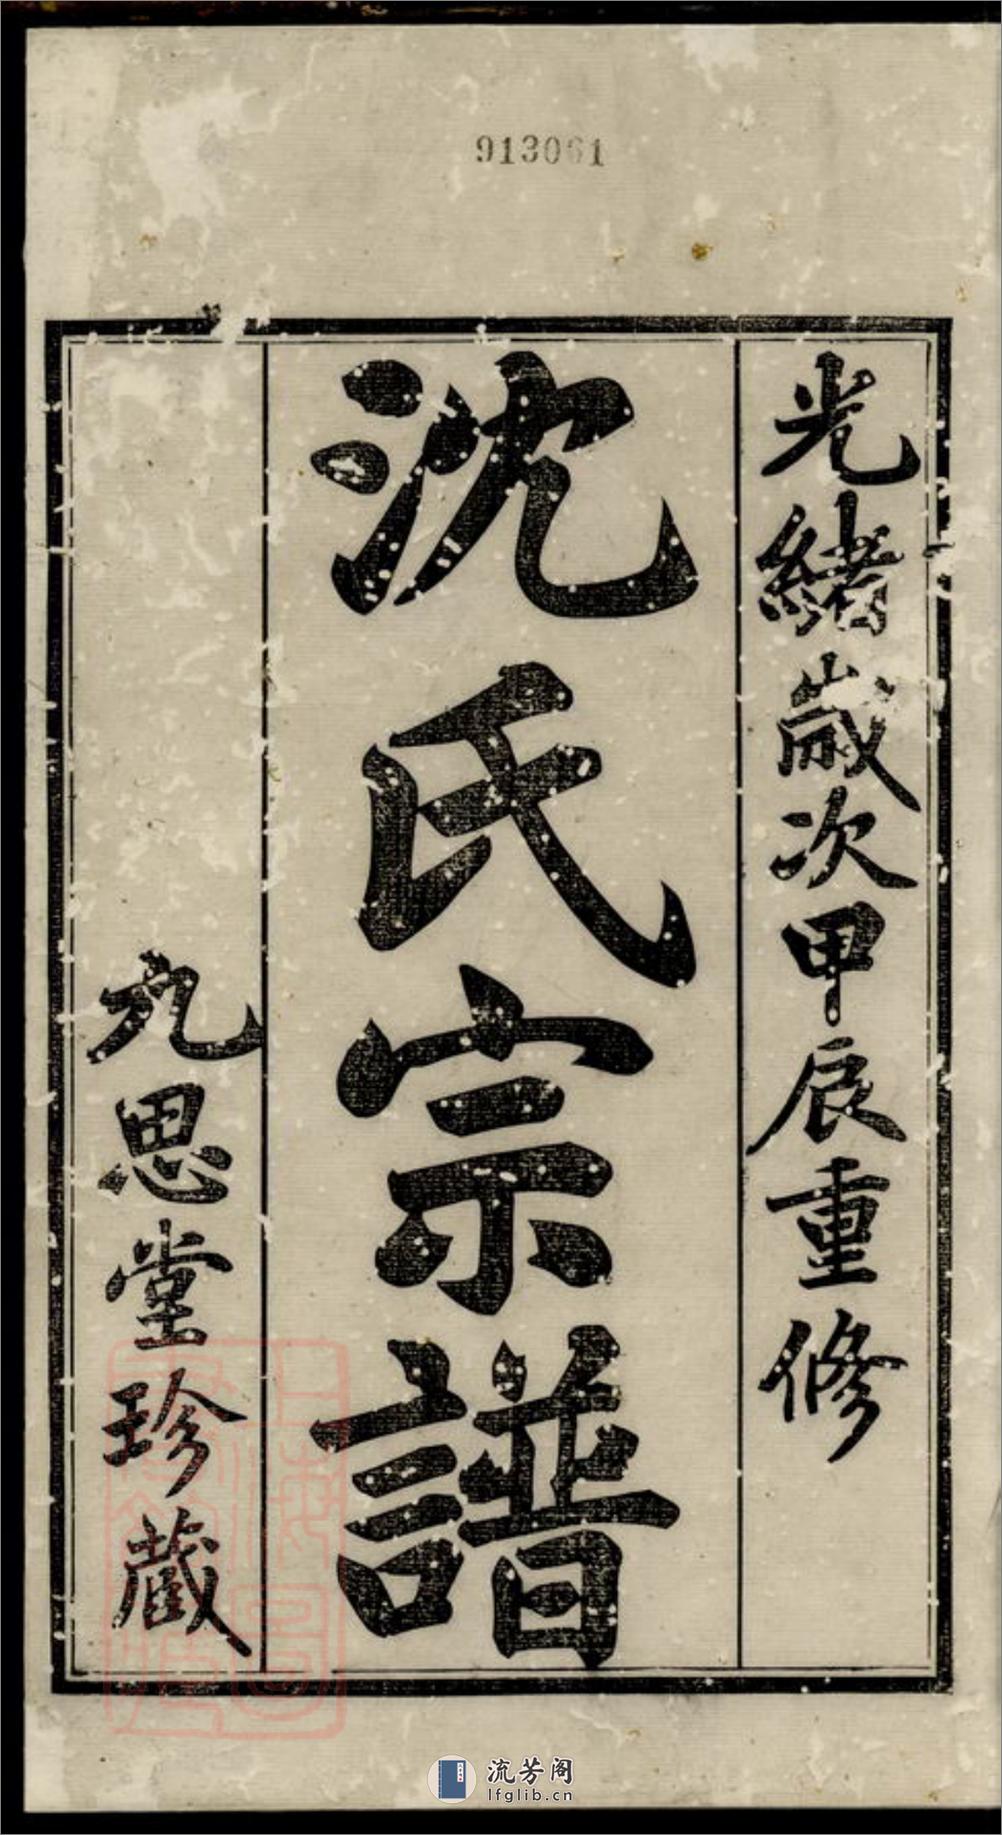 913061
光緒歲次甲辰重修
沈氏宗譜
九思堂珍藏
上海圖書館藏
流芳阁
lfglib.cn